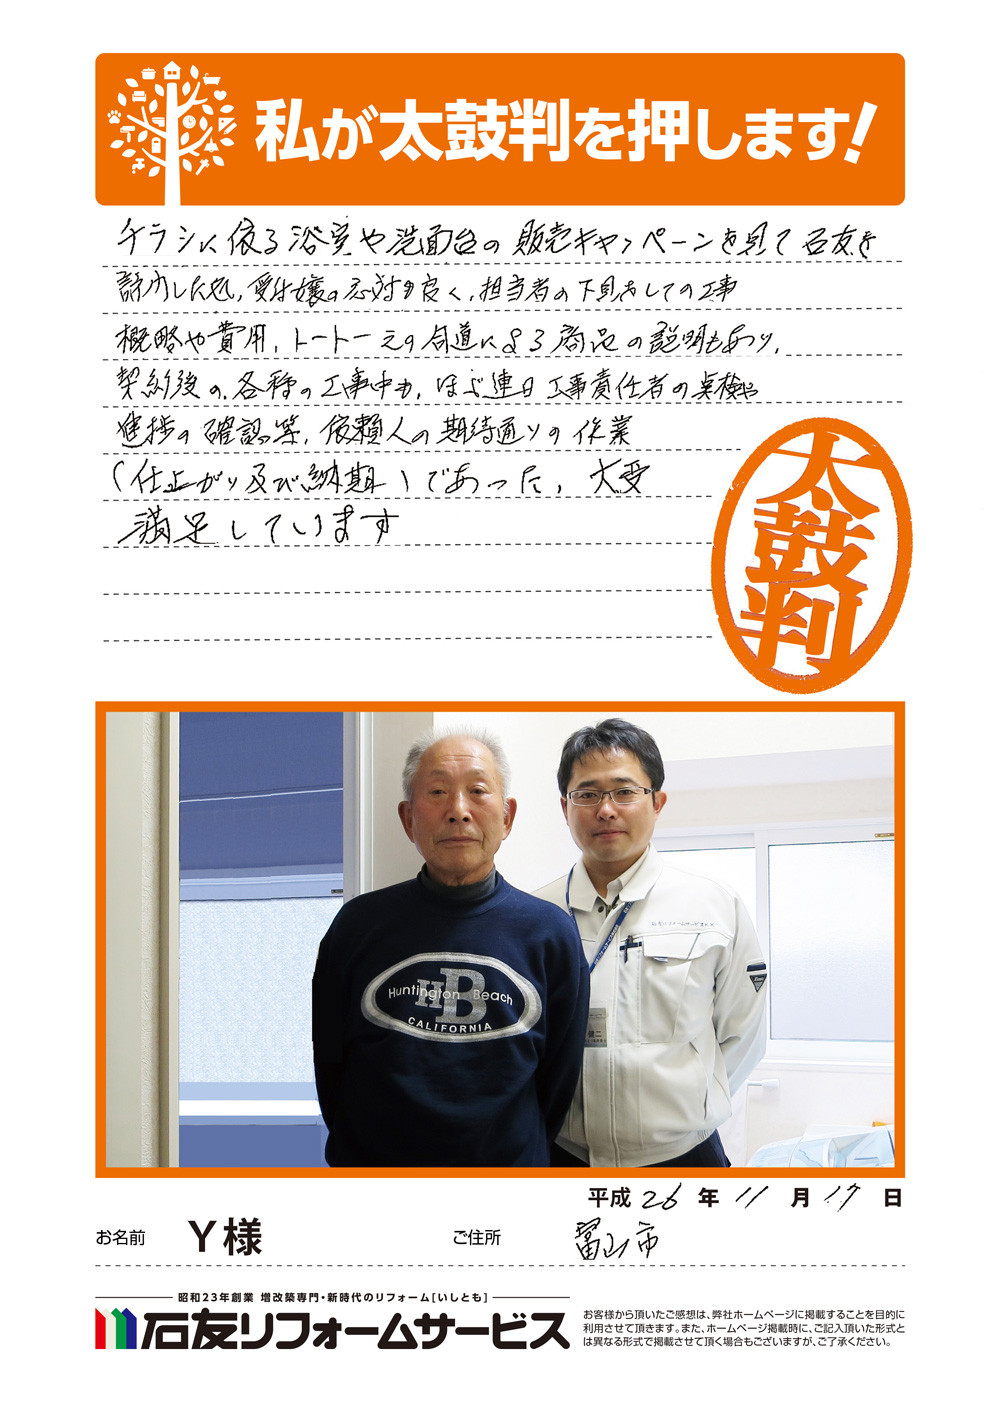 私が太鼓判を押します!
チラシに依る浴室や洗面台の販売キャンペーンを見て石友を
訪問した処、受付嬢の応対も良く、担当者の下見をしての工事
概略や費用、トートーえの同道による商品の説明もあり、
契約後の各種の工事中も、ほぶ連日工事責任者の点検や
進捗の確認等、依頼人の期待通りの作業
(仕上がり及び納期)であった、大変
満足しています
太鼓判
石友リフォームサービス
Huntington Beach
HB
CALIFORNIA
平成26年11月17日
お名前 Y様 ご住所 富山市
昭和23年創業 増改築専門・新時代のリフォーム[いしとも]
石友リフォームサービス
お客様から頂いたご感想は、弊社ホームページに掲載することを目的に
利用させて頂きます。また、ホームページ掲載時に、ご記入頂いた形式と
は異なる形式で掲載させて頂く場合もございますが、ご了承ください。